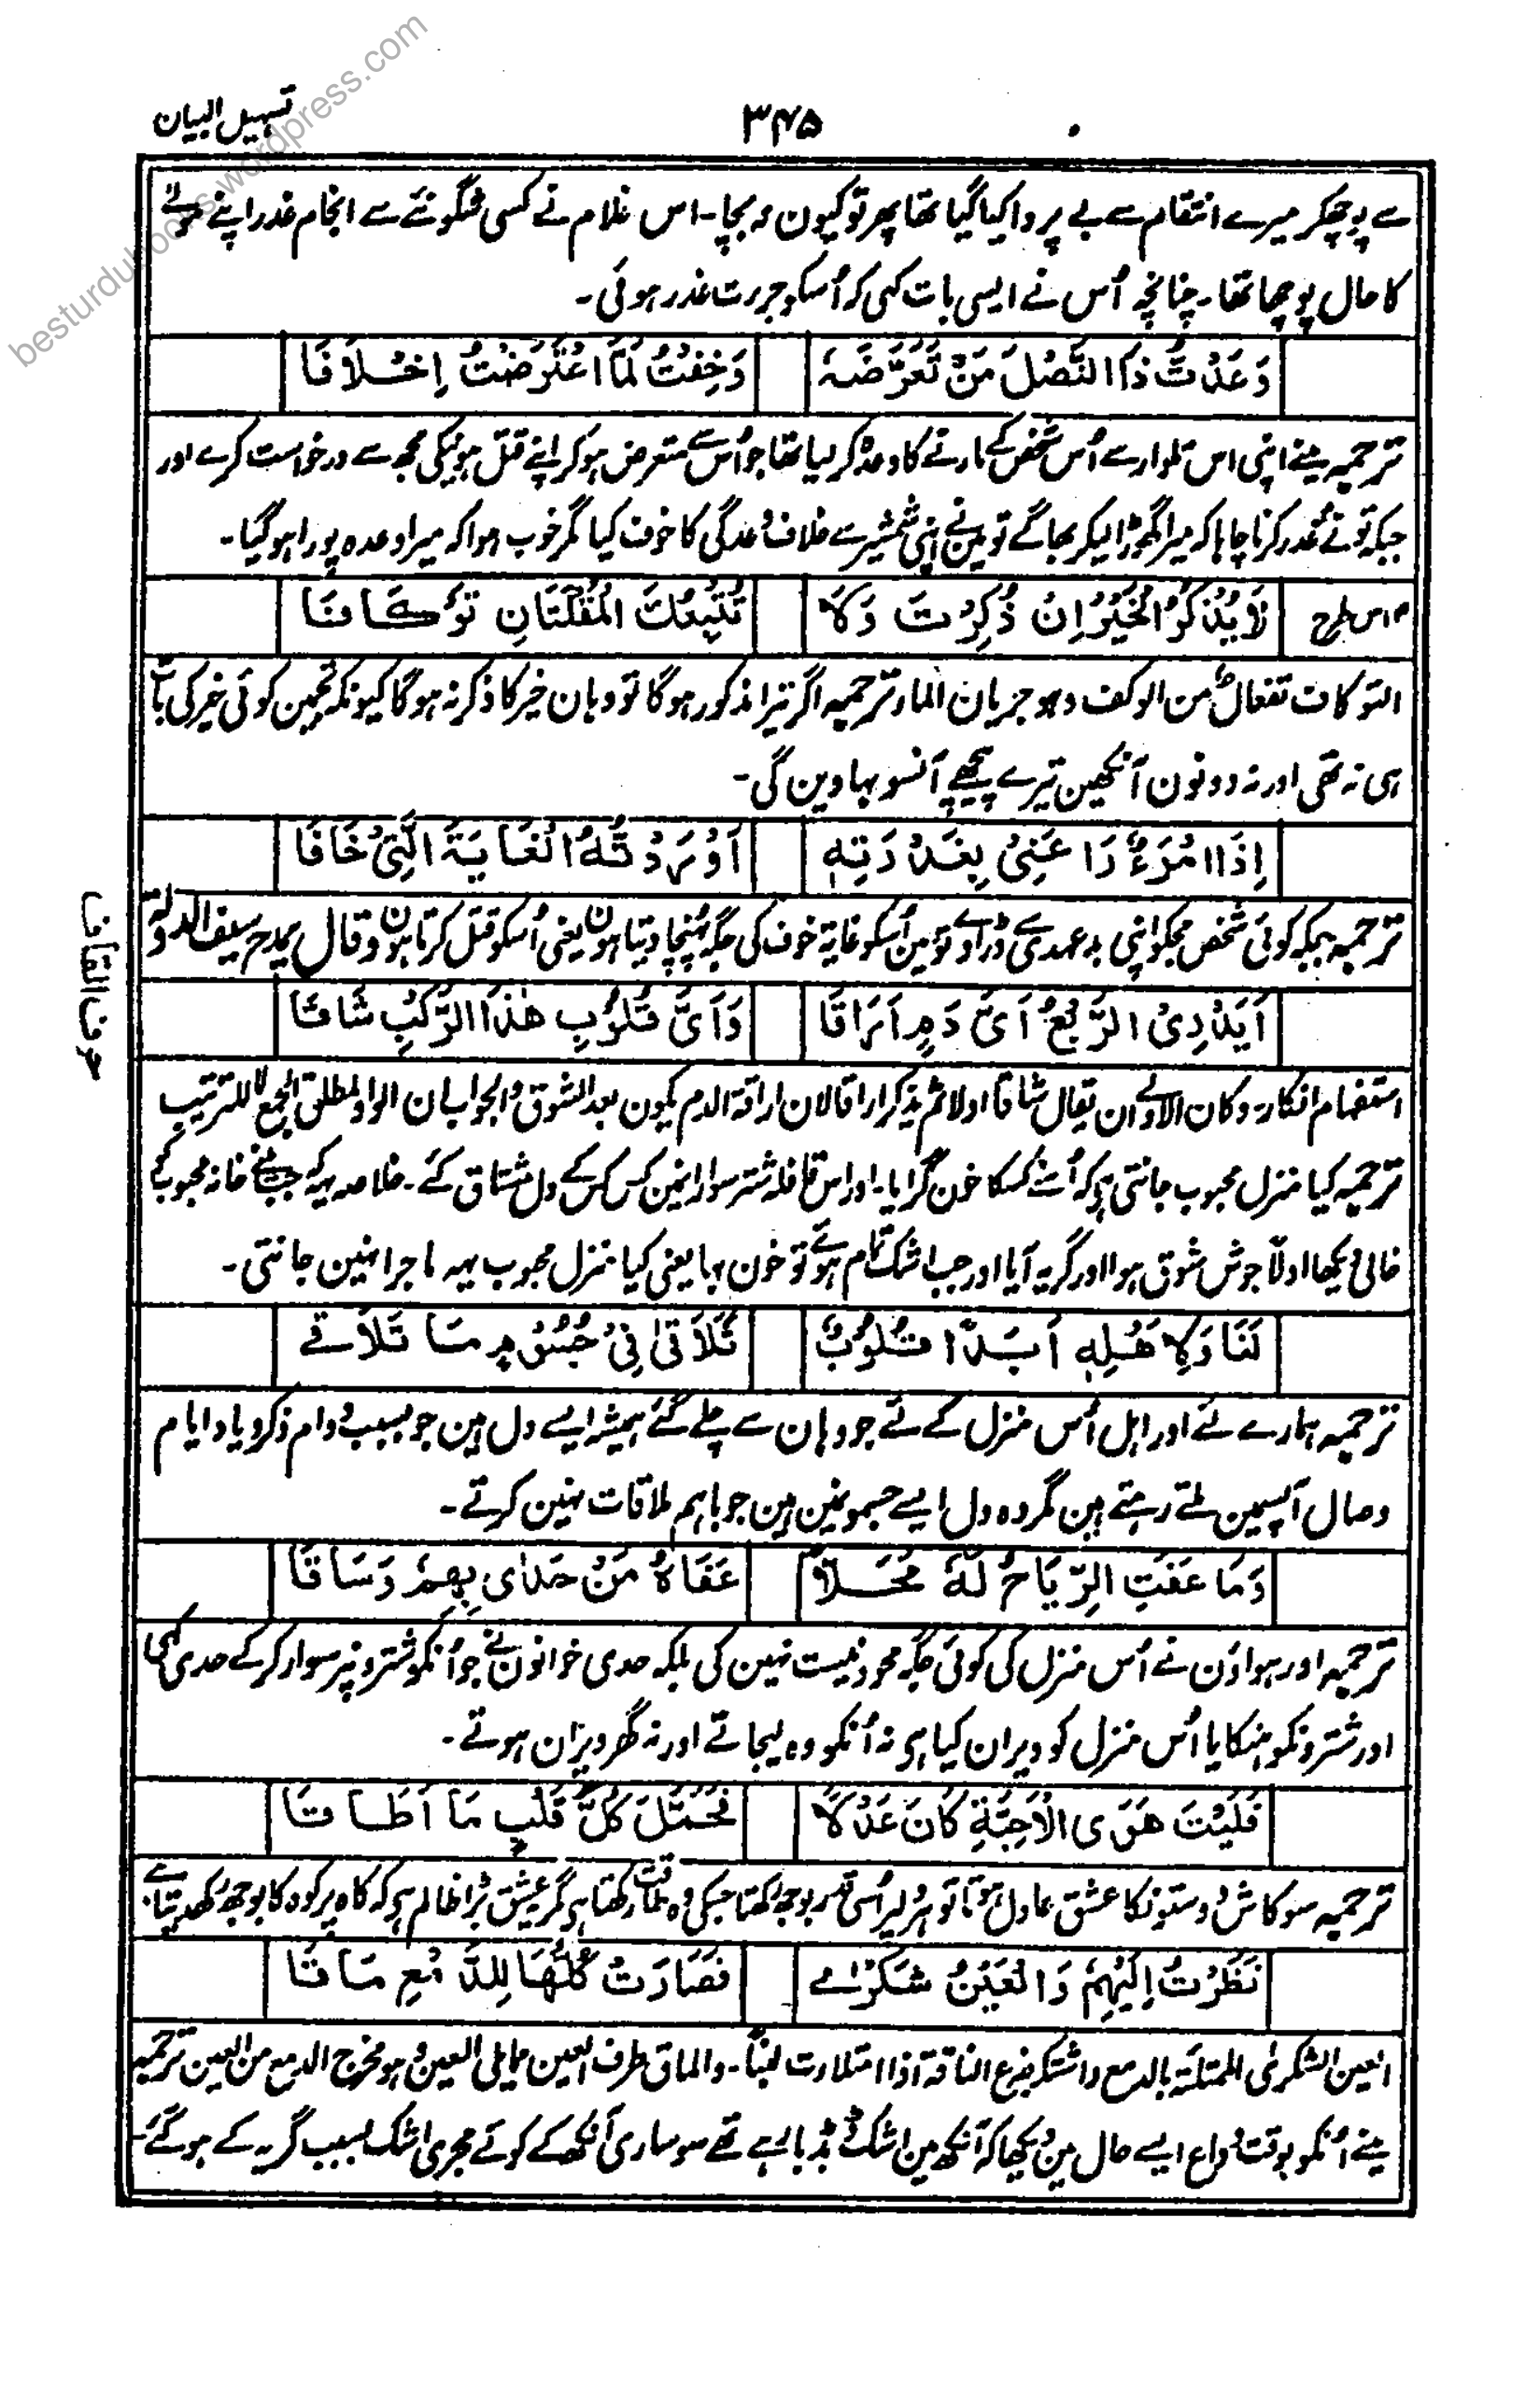 تسہیل البیان
۳۴۵
سے پوچھکر میرے انتقام سے بے پروا کیا گیا تھا پھر تو کیون نہ بچا۔ اس غلام نے کسی شگونئے سے انجام غدر اپنے مولے
کا حال پوچھا تھا۔ چنانچہ اُس نے ایسی بات کہی کہ اُسکو جررت غدر ہوئی۔
وَعَدْتُ ذَا النَّصْلَ مَنْ تَعَرَّضَہٗ وَخِفْتُ لَمَّا اعْتَرَضْتُ اِخْلَافَا
ترجمہ مینے اپنی اس تلوار سے اُس شخص کے مارنے کا وعدہ کر لیا تھا جو اُس سے متعرض ہو کر اپنے قتل ہونیکی مجھ سے درخواست کرے اور
جبکہ تو نے غدر کرنا چاہا کہ میرا گھوڑا لیکر بھاگے تو مین نے اپنی شمشیر سے خلاف وعدگی کا خوف کیا مگر خوب ہوا کہ میرا وعدہ پورا ہو گیا۔
لَا يُذْكَرُ الْخَيْرُ اِنْ ذُكِرْتَ وَلَا تُتْبِعُكَ الْمُقْلَتَانِ تَوْكَافَا
التوکاف تفعال من الوکف وہو جریان الماء ترجمہ اگر تیرا مذکور ہوگا تو وہان خیر کا ذکر نہ ہوگا کیونکہ تجھمین کوئی خیر کی بات
ہی نہ تھی اور نہ دونون آنکھین تیرے پیچھے آنسو بہاوین گی۔
اِذَا امْرُءٌ رَاعَنِیْ بِغَدْرَتِہٖ اَوْرَدْتُّہُ الْغَايَةَ الَّتِیْ خَافَا
ترجمہ جبکہ کوئی شخص مجکو اپنی بد عہدی سے ڈراوے تو مین اُسکو غایۃ خوف کی جگہ پہنچا دیتا ہون یعنی اُسکو قتل کرتا ہون وقال یمدح سیف الدولۃ
حرف القاف
اَيَدْرِی الرَّبْعُ اَیَّ دَمٍ اَرَاقَا وَاَیَّ قُلُوْبِ هٰذَا الرَّكْبِ شَاقَا
استفہام انکار۔ وکان الاولے ان یقال شاقا اولا ثم یذکر اراقا لان اراقۃ الدم یکون بعد الشوق والجواب ان الواو لمطلق الجمع لا للترتیب
ترجمہ کیا منزل محبوب جانتی ہی کہ اُسنے کسکا خون گرایا۔ اور اس قافلہ شتر سواران مین کس کس کے دل مشتاق کئے۔ خلاصہ یہہ کہ جب مینے خانہ محبوب کو
خالی دیکھا اولاً جوش شوق ہوا اور گریہ آیا اور جب اشک تمام ہوئے تو خون بہا یعنی کیا منزل محبوب یہہ ماجرا نہین جانتی۔
لَنَا وَلِاَهْلِہٖ اَبَدًا قُلُوْبٌ تَلَاقٰی فِیْ جُسُوْمٍ مَا تَلَاقٰے
ترجمہ ہمارے لئے اور اہل اُس منزل کے لئے جو وہان سے چلے گئے ہمیشہ ایسے دل ہین جو بسبب دوام ذکر و یاد ایام
وصال آپسمین ملتے رہتے ہین مگر وہ دل ایسے جسمونمین ہین جو باہم ملاقات نہین کرتے۔
وَمَا عَفَتِ الرِّيَاحُ لَہٗ مَحَلًّا عَفَاہُ مَنْ حَدٰی بِهِمْ وَسَاقَا
ترجمہ اور ہواؤن نے اُس منزل کی کوئی جگہ محو و نیست نہین کی بلکہ حدی خوانون نے جو اُنکو شترونپر سوار کر کے حدی کہی
اور شترونکو ہنکایا اُس منزل کو ویران کیا ہی نہ اُنکو وہ لیجاتے اور نہ گھر ویران ہوتے۔
فَلَيْتَ هَوَی الْاَحِبَّةِ كَانَ عَدْلًا فَحَمَّلَ كُلَّ قَلْبٍ مَا اَطَاقَا
ترجمہ سو کاش دوستونکا عشق عادل ہوتا تو ہر دلپر اُسی قدر بوجھ رکھتا جسکی وہ طاقت رکھتا ہی مگر عشق بڑا ظالم ہی کہ کاہ پر کوہ کا بوجھ رکھدیتا ہے
نَظَرْتُ اِلَيْهِمْ وَالْعَيْنُ شَكْرٰے فَصَارَتْ كُلُّهَا لِلدَّمْعِ مَاقَا
العین الشکرٰی الممتلئۃ بالدمع واشتکر ضرع الناقۃ اذا امتلارت لبناً۔ والماق طرف العین مما یلی العین وہو مخرج الدمع من العین ترجمہ
مینے اُنکو بوقت وداع ایسے حال مین دیکھا کہ آنکھ مین اشک ڈبڈبا رہے تھے سو ساری آنکھ کے کوئے مجری اشک بسبب گریہ کے ہو گئے۔
besturdubooks.wordpress.com